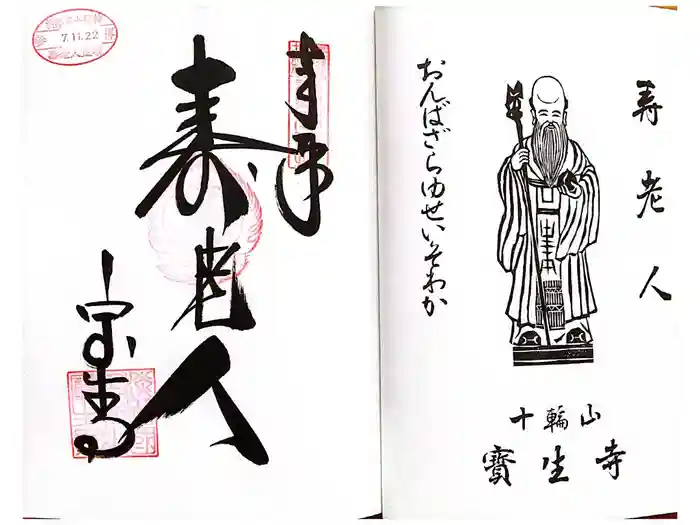 7.11.22
奉拝
寿老人
宝生寺
寿老人
おんばざらゆせいそわか
十輪山
寳生寺